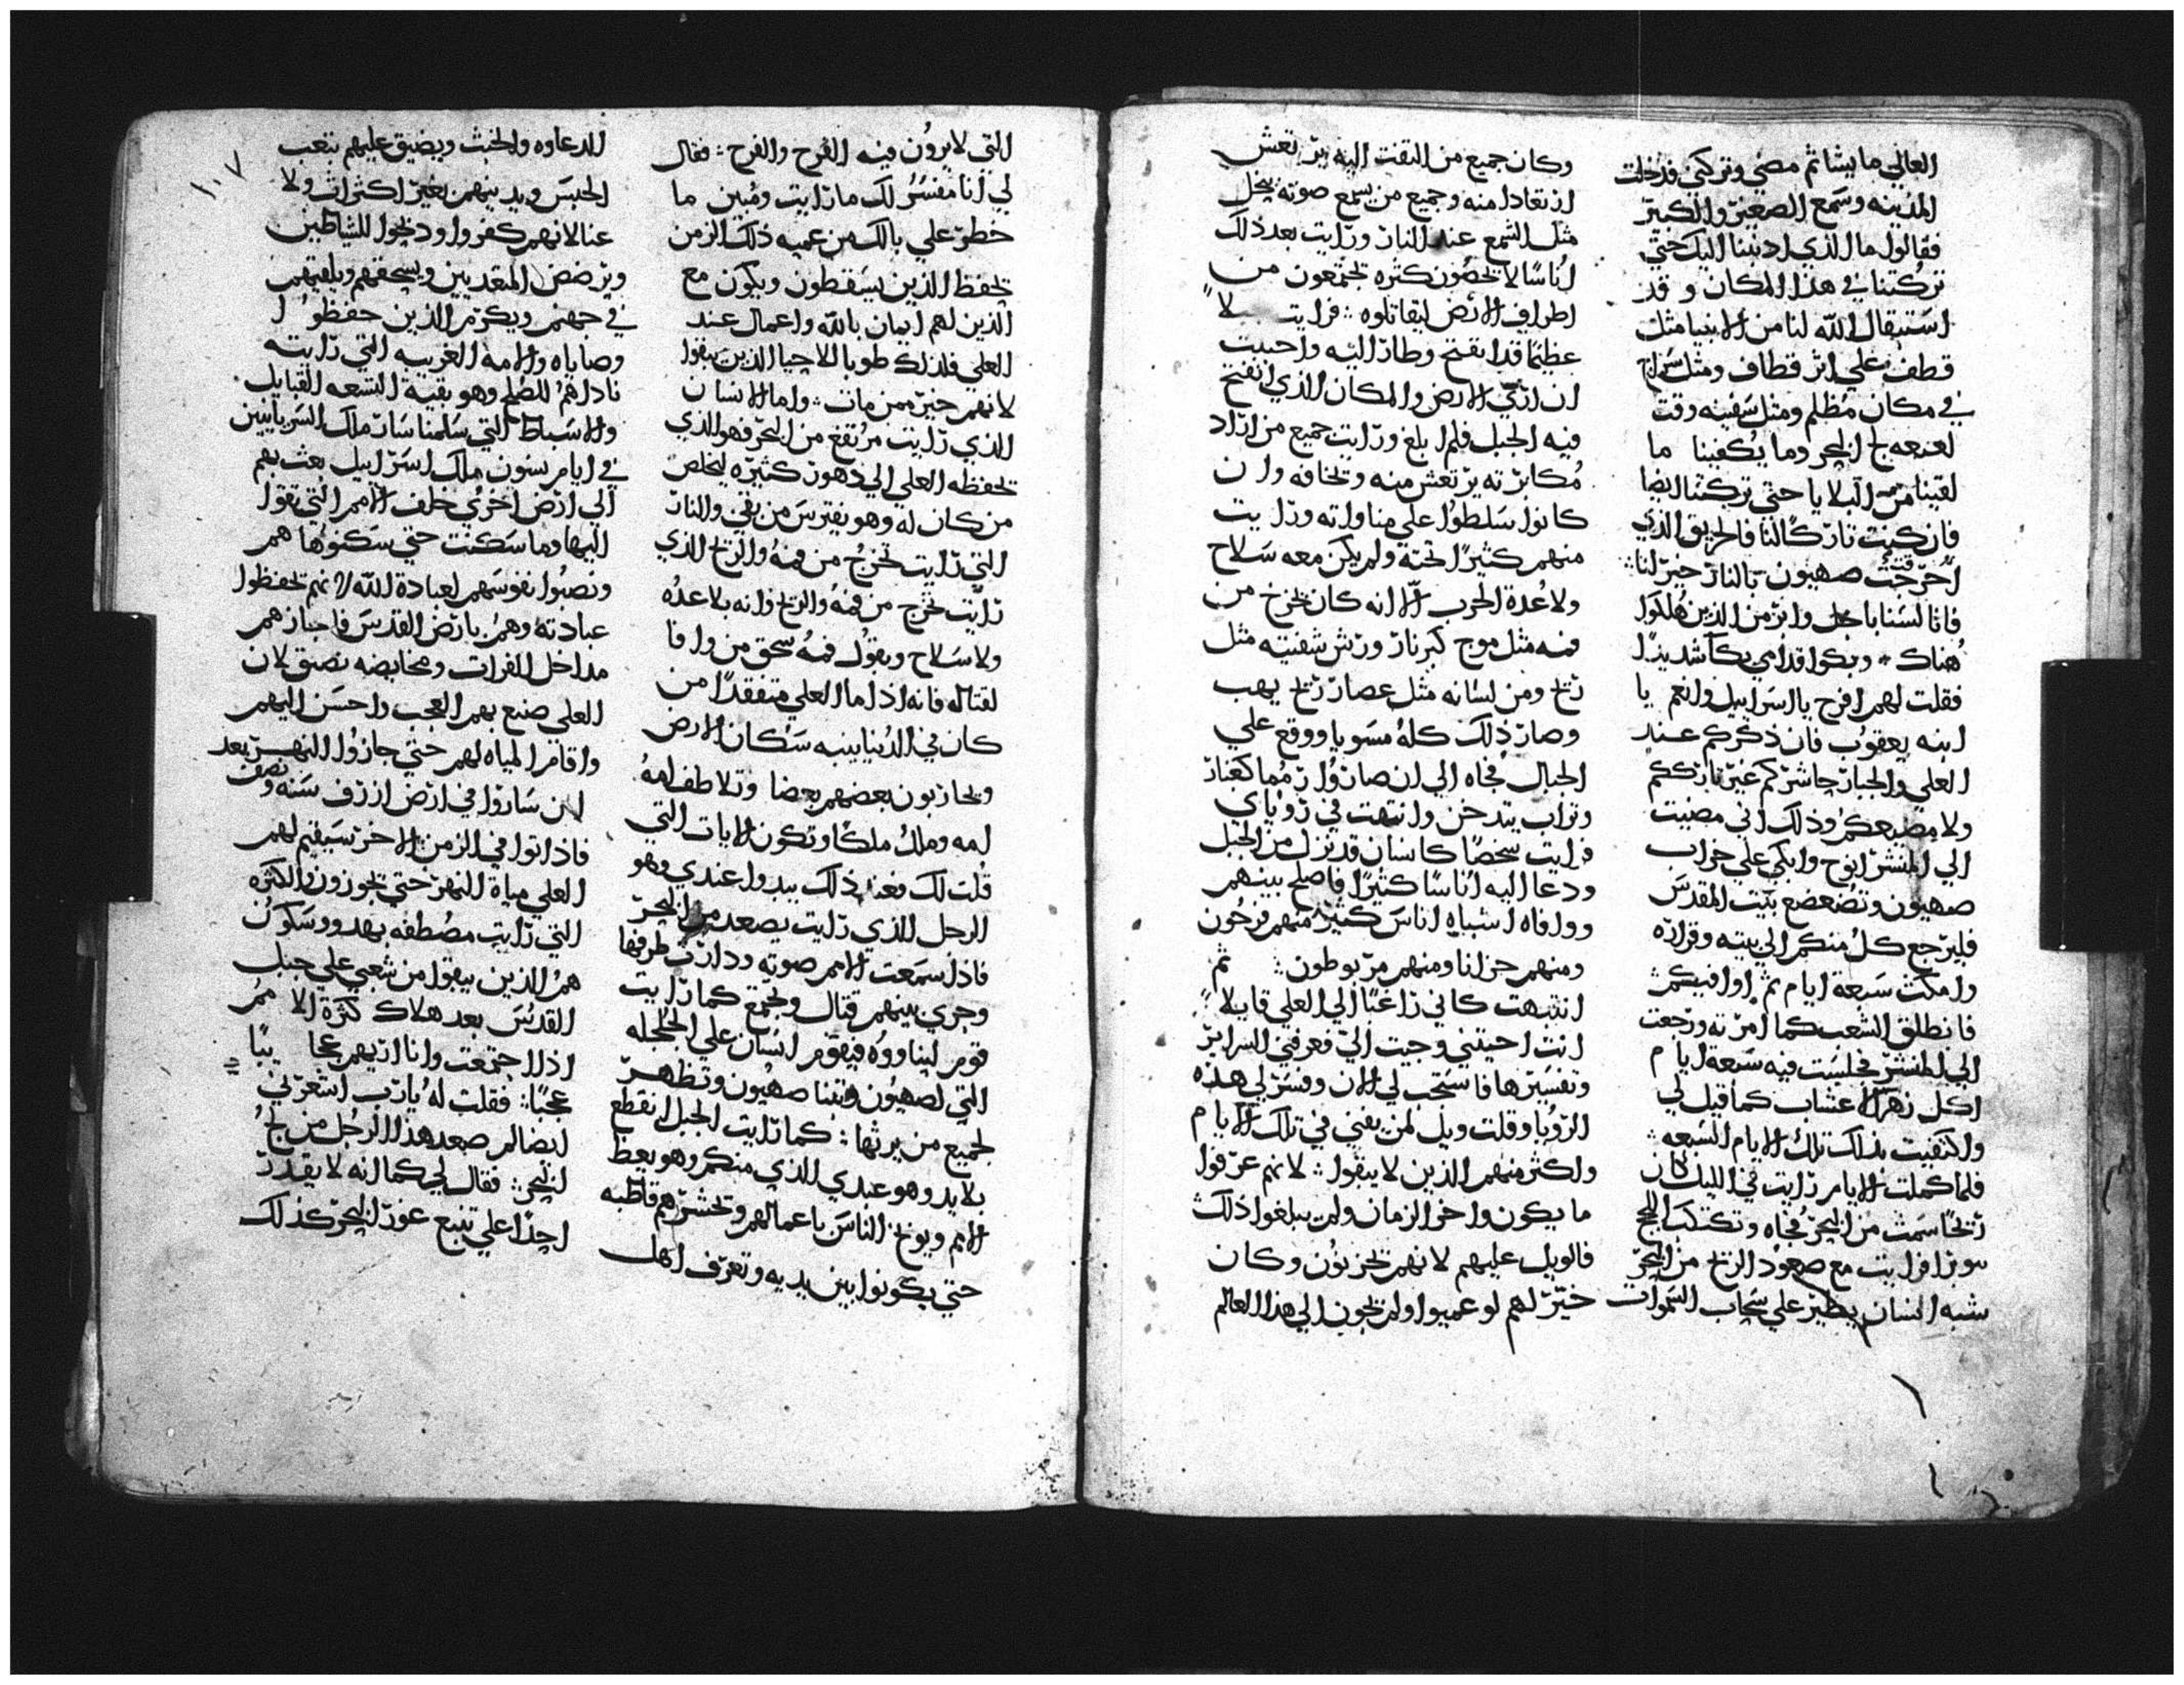 العالي ما يشا ثم مضي وتركني فدخلت
المدينه وسمع الصغير والكبير
فقالوا ما الذي اذنبنا اليك حتي
تركتنا في هذا المكان و قد
استبقال الله لنا من الانبيا مثل
قطف علي اثر قطاف ومثل سراج
في مكان مظلم ومثل سفينه وقت
البحر وما يكفينا ما
لقينا من البلايا حتي تركتنا ايضا
فان كنت تاركا لنا فالحريق الذي
صهيون بالنار خير لنا
فانا لسنا باجل وابر من الذين هلكوا
هناك وبكوا قدامي بكا شديدا
فقلت لهم افرح يا اسراييل وانعم يا
ابنه يعقوب فان ذكركم عند
العلي والجبار حاشركم غير تارككم
ولا مضيعكم وذلك اني مضيت
الي المنشر انوح وابكي علي خراب
صهيون وتضعضع بيت المقدس
فليرجع كل منكم الي بيته وقراره
وامكث سبعة ايام ثم اوافيكم
فانطلق الشعب كما امرته ورجعت
الي المنشر فجلست فيه سبعة ايام
اكل زهر الاعشاب كما قيل لي
واكتفيت بذلك تلك الايام السبعه
فلما كملت الايام رايت في الليل كان
ريحا من البحر فجاه
فرايت مع صعود الريح من البحر
شبه انسان يطير علي سحاب السموات
وكان جميع من التفت اليه يرتعش
ارتعادا منه وجميع من يسمع صوته ينحل
مثل الشمع عند النار ورايت بعد ذلك
اناسا لا يحصون كثره يجتمعون من
اطراف الارض ليقاتلوه فرايت
عظيما قد انفتح وطار اليه واحببت
ان اري الارض والمكان الذي انفتح
فيه الجبل فلم ابلغ ورايت جميع من اراد
مكابرته يرتعش منه وتخافه وان
كانوا سلطوا علي مناواته ورايت
منهم كثيرا تحته ولم يكن معه سلاح
ولا عدة الحرب الا انه كان يخرج من
فمه مثل موج كير نار ورش شفتيه مثل
ريح ومن لسانه مثل عصار ريح يهب
وصار ذلك كله مسويا ووقع علي
الجبال فجاه الي ان صاروا رمما كغبار
وتراب يتدخن وانتهت في روياي
فرايت شخصا كانسان قد نزل من الجبل
ودعا اليه اناسا كثيرا فاصلح بينهم
ووافاه اشباه اناس كثيره منهم فرحون
ومنهم حزانا ومنهم مربوطون ثم
انتبهت كاني راغبا الي العلي قايلا
انت احيتني وجيت الي فعرفني السراير
وتفسيرها فاستجب لي الان وفسر لي هذه
الرويا وقلت ويل لمن يفني في تلك الايام
واكثر منهم الذين لا يبقوا لانهم عرفوا
ما يكون واخر الزمان ولم يبلغوا ذلك
فالويل عليهم لانهم يحزنون وكان
خير لهم لو عميوا ولم يجون الي هذا العالم
التي لا يرون فيه الفرح والفرح فقال
لي انا مفسر لك ما رايت ومبين ما
خطر علي بالك من عميه ذلك الزمن
يحفظ الذين يسقطون ويكون مع
الذين لهم ايمان بالله واعمال عند
العلي فلذلك طوبا للاحيا الذين يبقوا
لانهم خير ممن مات واما الانسان
الذي رايت مرتفع من البحر فهو الذي
يحفظه العلي الي دهور كثيره ليخلص
من كان له وهو يفترس من بقي والنار
التي رايت تخرج من فمه والريح الذي
رايت تخرج من فمه والريح وانه بلا عده
ولا سلاح ويقول فمه سحق من وافا
لقتاله فانه اذا ما العلي متفقدا من
كان في الدنيا ينبه سكان الارض
ويحاربون بعضهم بعضا وتلاطف امه
امه وملك ملكا وتكون الايات التي
قلت لك فعند ذلك يبدوا عندي وهو
الرجل الذي رايت يصعد من البحر
فاذا سمعت الامم صوته ودارت طرفها
وجري بينهم قتال وتجمع كما رايت
قوم ليناووه فيقوم انسان علي الجلجله
التي لصهيون وتبنا صهيون وتظهر
لجميع من يرثها كما رايت الجبل انقطع
بلا يد وهو عبدي الذي منكم وهو يعظ
الامم ويوبخ الناس باعمالهم وتحشرهم قاطبه
حتي يكونوا بين يديه وتعرف اهل
١٠٧
الدعاوه والخبث ويضيق عليهم بتعب
الحبس ويدينهم بغير اكتراث ولا
عنا لانهم كفروا ودخلوا للشياطين
ويرضض المتعديين ويسحقهم ويلقيهم
في جهنم ويكرم الذين حفظوا
وصاياه والامه الغريبه التي رايته
ناداهم للصلح وهو بقية التسعه القبايل
والاسباط التي سلمناسار ملك السريانيين
في ايام يسون ملك اسراييل بعث بهم
الي ارض اخري خلف الامم التي تقول
اليها وما سكنت حتي سكنوها هم
ونصبوا نفوسهم لعبادة الله لانهم يحفظوا
عبادته وهم بارض القدس فاجازهم
مداخل الفرات ومخايضه تضيق لان
العلي صنع بهم العجب واحسن اليهم
واقام المياه لهم حتي جازوا النهر بعد
ان ساروا في ارض ارزف سنه ونصف
فاذا اتوا في الزمن الاخر سيقيم لهم
العلي مياة النهر حتي يجوزون والكثره
التي رايت مصطفه بهدو وسكون
هم الذين يبقوا من شعبي علي جبل
القدس بعد هلاك كثرة الامم
اذا اجتمعت وانا اريهم عجايبا
عجبا فقلت له يارب اشعرني
ايضا لم صعد هذا الرجل من لج
البحر فقال لي كما انه لا يقدر
احدا علي تتبع غور البحر كذلك